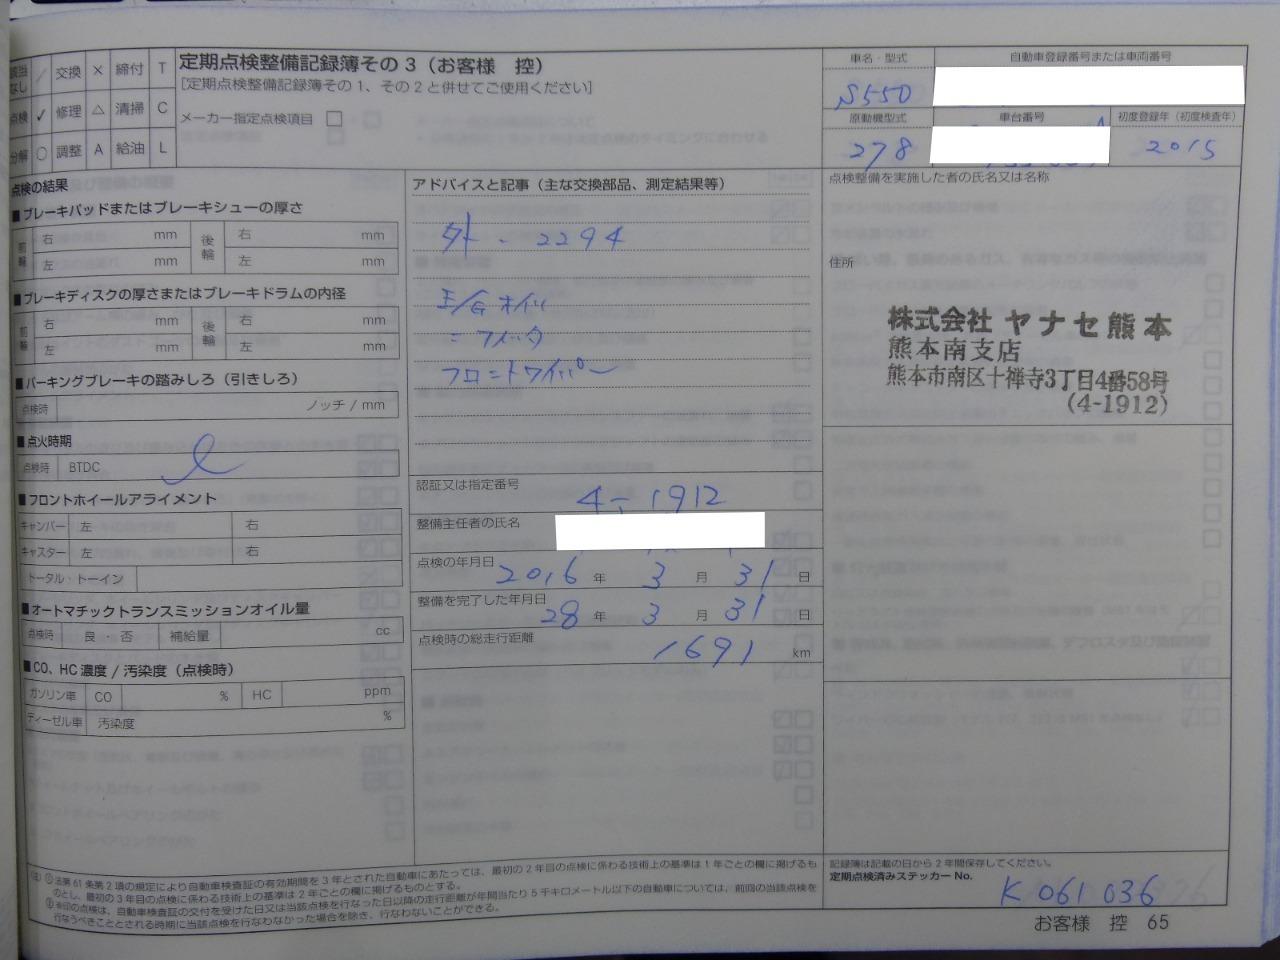 該当なし / 交換 × 締付 T
点検 ✓ 修理 △ 清掃 C
分解 ○ 調整 A 給油 L
定期点検整備記録簿その3(お客様 控)
[定期点検整備記録簿その1、その2と併せてご使用ください]
メーカー指定点検項目 □
車名・型式
S550
自動車登録番号または車両番号
原動機型式
278
車台番号
初度登録年(初度検査年)
2015
点検の結果
■ブレーキパッドまたはブレーキシューの厚さ
前輪 右 mm 後輪 右 mm
左 mm 左 mm
■ブレーキディスクの厚さまたはブレーキドラムの内径
前輪 右 mm 後輪 右 mm
左 mm 左 mm
■パーキングブレーキの踏みしろ(引きしろ)
点検時 ノッチ/mm
■点火時期
点検時 BTDC
■フロントホイールアライメント
キャンバー 左 右
キャスター 左 右
トータル・トーイン
■オートマチックトランスミッションオイル量
点検時 良・否 補給量 cc
■CO、HC濃度/汚染度(点検時)
ガソリン車 CO % HC ppm
ディーゼル車 汚染度 %
アドバイスと記事(主な交換部品、測定結果等)
外-2294
E/Gオイル
フロントワイパー
認証又は指定番号
4-1912
整備主任者の氏名
点検の年月日
2016年 3月 31日
整備を完了した年月日
28年 3月 31日
点検時の総走行距離
1691 km
点検整備を実施した者の氏名又は名称
住所
株式会社 ヤナセ熊本
熊本南支店
熊本市南区十禅寺3丁目4番58号
(4-1912)
(注) ①法第61条第2項の規定により自動車検査証の有効期間を3年とされた自動車にあたっては、最初の2年目の点検に係わる技術上の基準は1年ごとの欄に掲げるも
のとし、最初の3年目の点検に係わる技術上の基準は2年ごとの欄に掲げるものとする。
②※印の点検は、自動車検査証の交付を受けた日又は当該点検を行なった日以降の走行距離が年間当たり5千キロメートル以下の自動車については、前回の当該点検を
行なうべきこととされる時期に当該点検を行なわなかった場合を除き、行なわないことができる。
記録簿は記載の日から2年間保存してください。
定期点検済みステッカーNo.
K061036
お客様 控 65